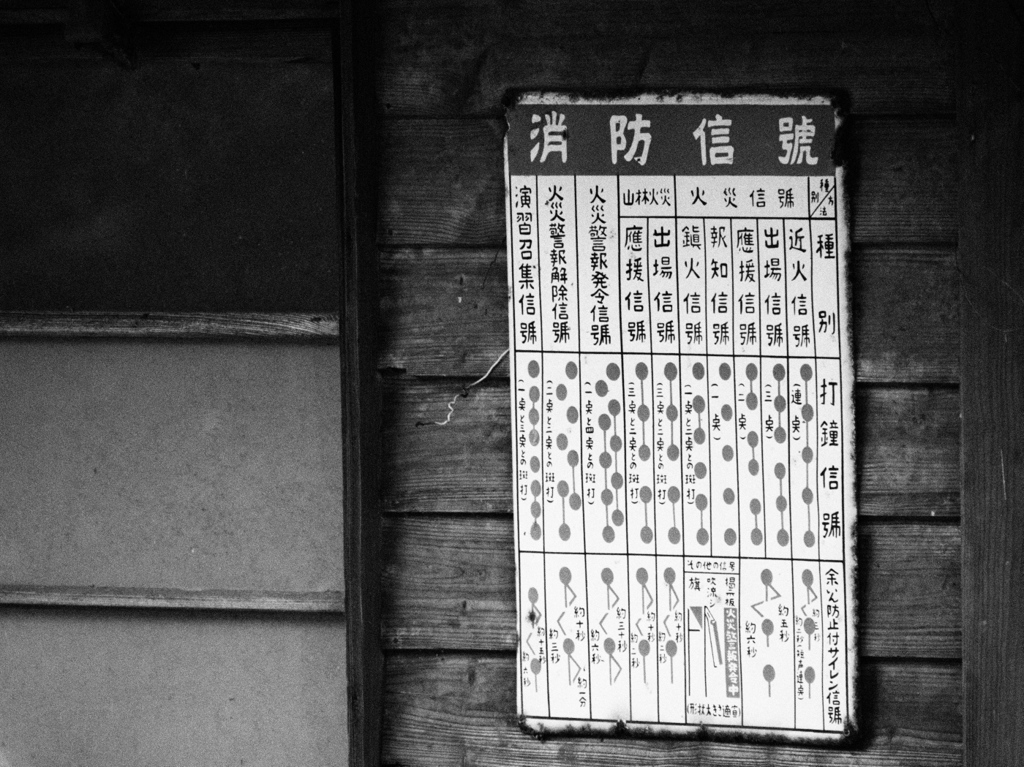 消防信號
種別
方法
火災信號
山林火災
種別
近火信號
出場信號
應援信號
報知信號
鎭火信號
出場信號
應援信號
火災警報発令信號
火災警報解除信號
演習召集信號
打鐘信號
(連点)
(三点)
(二点)
(一点)
(一点と二点との斑打)
(三点と二点との斑打)
(三点と二点との斑打)
(一点と四点との斑打)
(二点と二点との斑打)
(一点と三点との斑打)
余いん防止付サイレン信號
約三秒
約五秒
約六秒
その他の信号
掲示板
吹流シ
旗
火災警報発令中
(形状大きさ適宜)
約十秒
約二秒
約十秒
約二秒
約三十秒
約六秒
約十秒
約三秒
約一分
約十五秒
約六秒